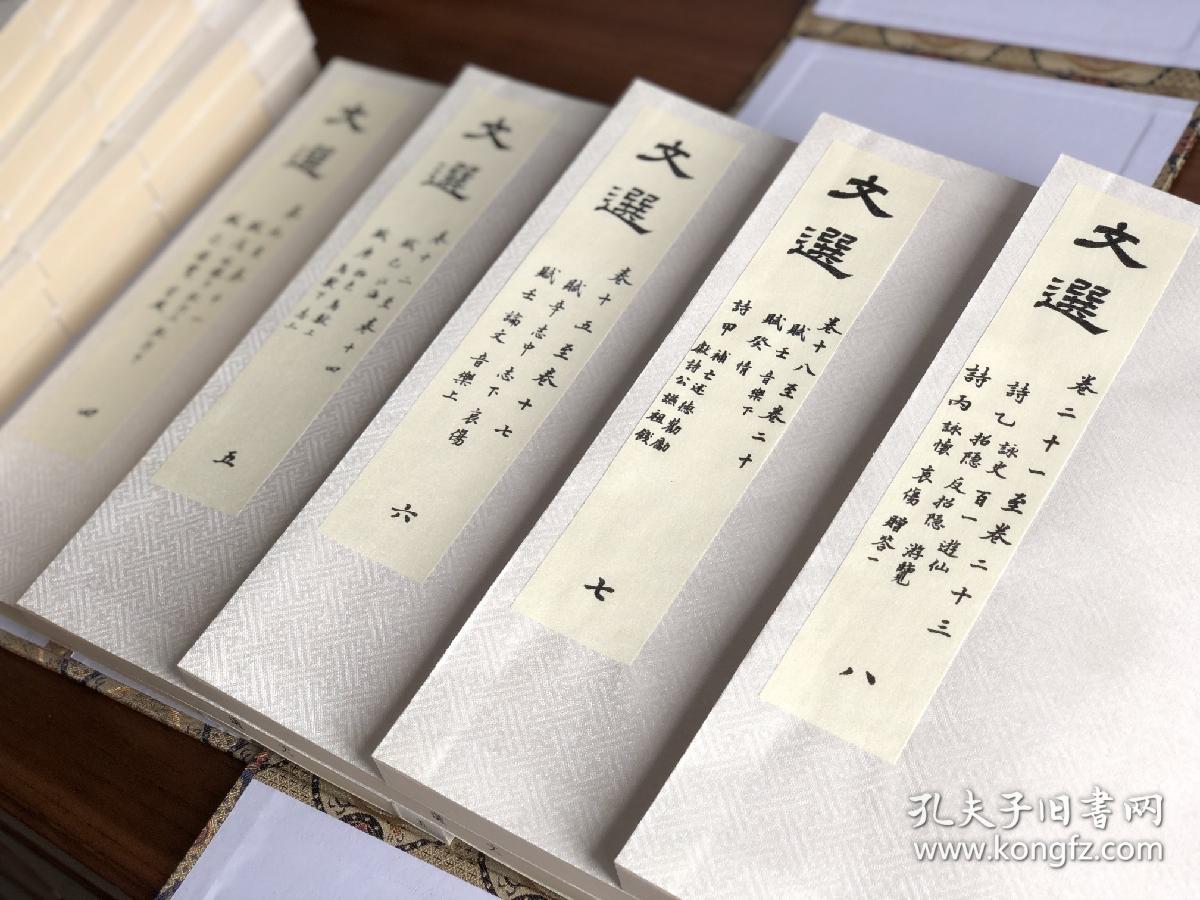 文選
卷二十一至卷二十三
詩乙 詠史 百一 遊仙
招隐 反招隐 游覽
詩丙 詠懷 哀傷 贈答一
八
文選
卷十八至卷二十
賦壬 音樂下
賦癸 情
詩甲 補亡 述德 勸勵
獻詩 公讌 祖餞
七
文選
卷十五至卷十七
賦辛 志中 志下 哀傷
賦壬 論文 音樂上
六
文選
卷十二至卷十四
賦己
賦庚
五
文選
四
孔夫子旧書网
www.kongfz.com